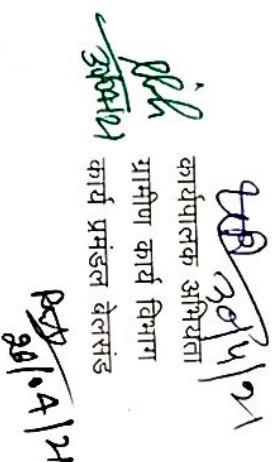 30/4/21
कार्यपालक अभियंता
ग्रामीण कार्य विभाग
कार्य प्रमंडल बेलसंड
30/04/21